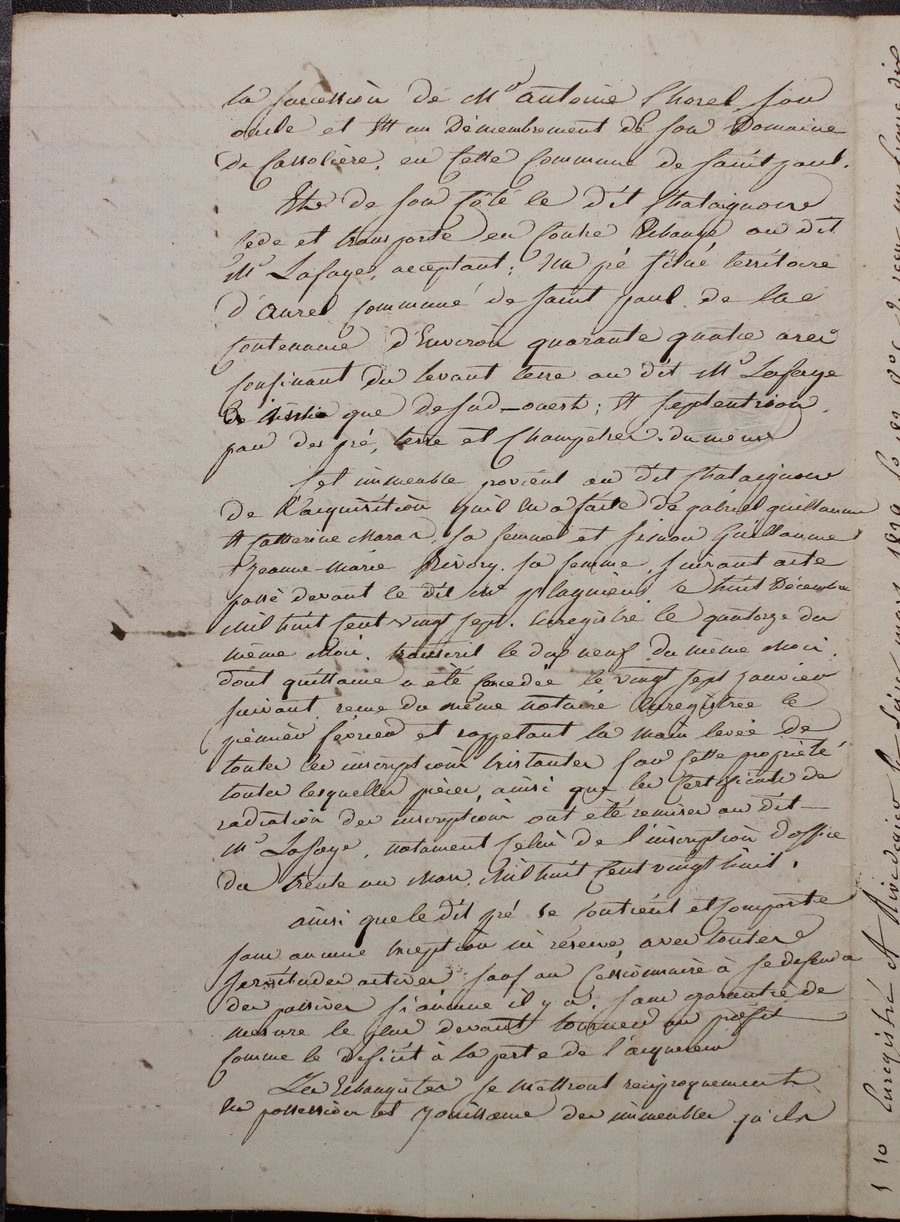 la succession de Mr antoine Chorel son
oncle et Est un Démembrement de son Domaine
de Cassolière, en Cette Commune de Saint paul.
Et de son Côté le dit Chataignon
cède et transporte en Contre Echange au dit
Mr Lafaye, acceptant; un pré situé territoire
d'aurel Commune de Saint paul de la
Contenance d'Environ quarante quatre ares
Confinant du levant terre au dit Mr Lafaye
que de sud-ouest; Et septentrion
par des pré, terre et Champêtres du même
Cet immeuble provient au dit Chataignon
de l'acquisition qu'il En a faite de gabriel guillaume
Et Catherine Maras sa femme et simon Guillaume
& jeanne-marie Rivory sa femme, suivant acte
passé devant le dit me plagnieu le huit Décembre
mil huit Cent vingt sept. Enregistré le quatorze du
même Mois. transcrit le dix neuf du même Mois,
dont quittance a été Concedée le vingt sept janvier
suivant reçue du même Notaire Enregistrée le
premier février et rappelant la main levée de
toutes les inscriptions Existantes sur Cette propriété
toutes lesquelles pièces, ainsi que les Certificats de
radiation des inscriptions ont été remises au dit
Mr Lafaye, notament Celui de l'inscription d'office
du trente un Mars Mil huit Cent vingt huit.
ainsi que le dit pré se Contient et Comporte
sans aucune Exception ni réserve avec toutes
servitudes actives sauf au Cessionnaire à se defendre
des passives si aucune il y a, sans garantie de
mesure le plus devant tourner au profit
Comme le deficit à la perte de l'acquereur
Les Echangistes se mettront reciproquement
En possession et jouissance des immeubles qu'ils
10 Enregistré A Mars 1829